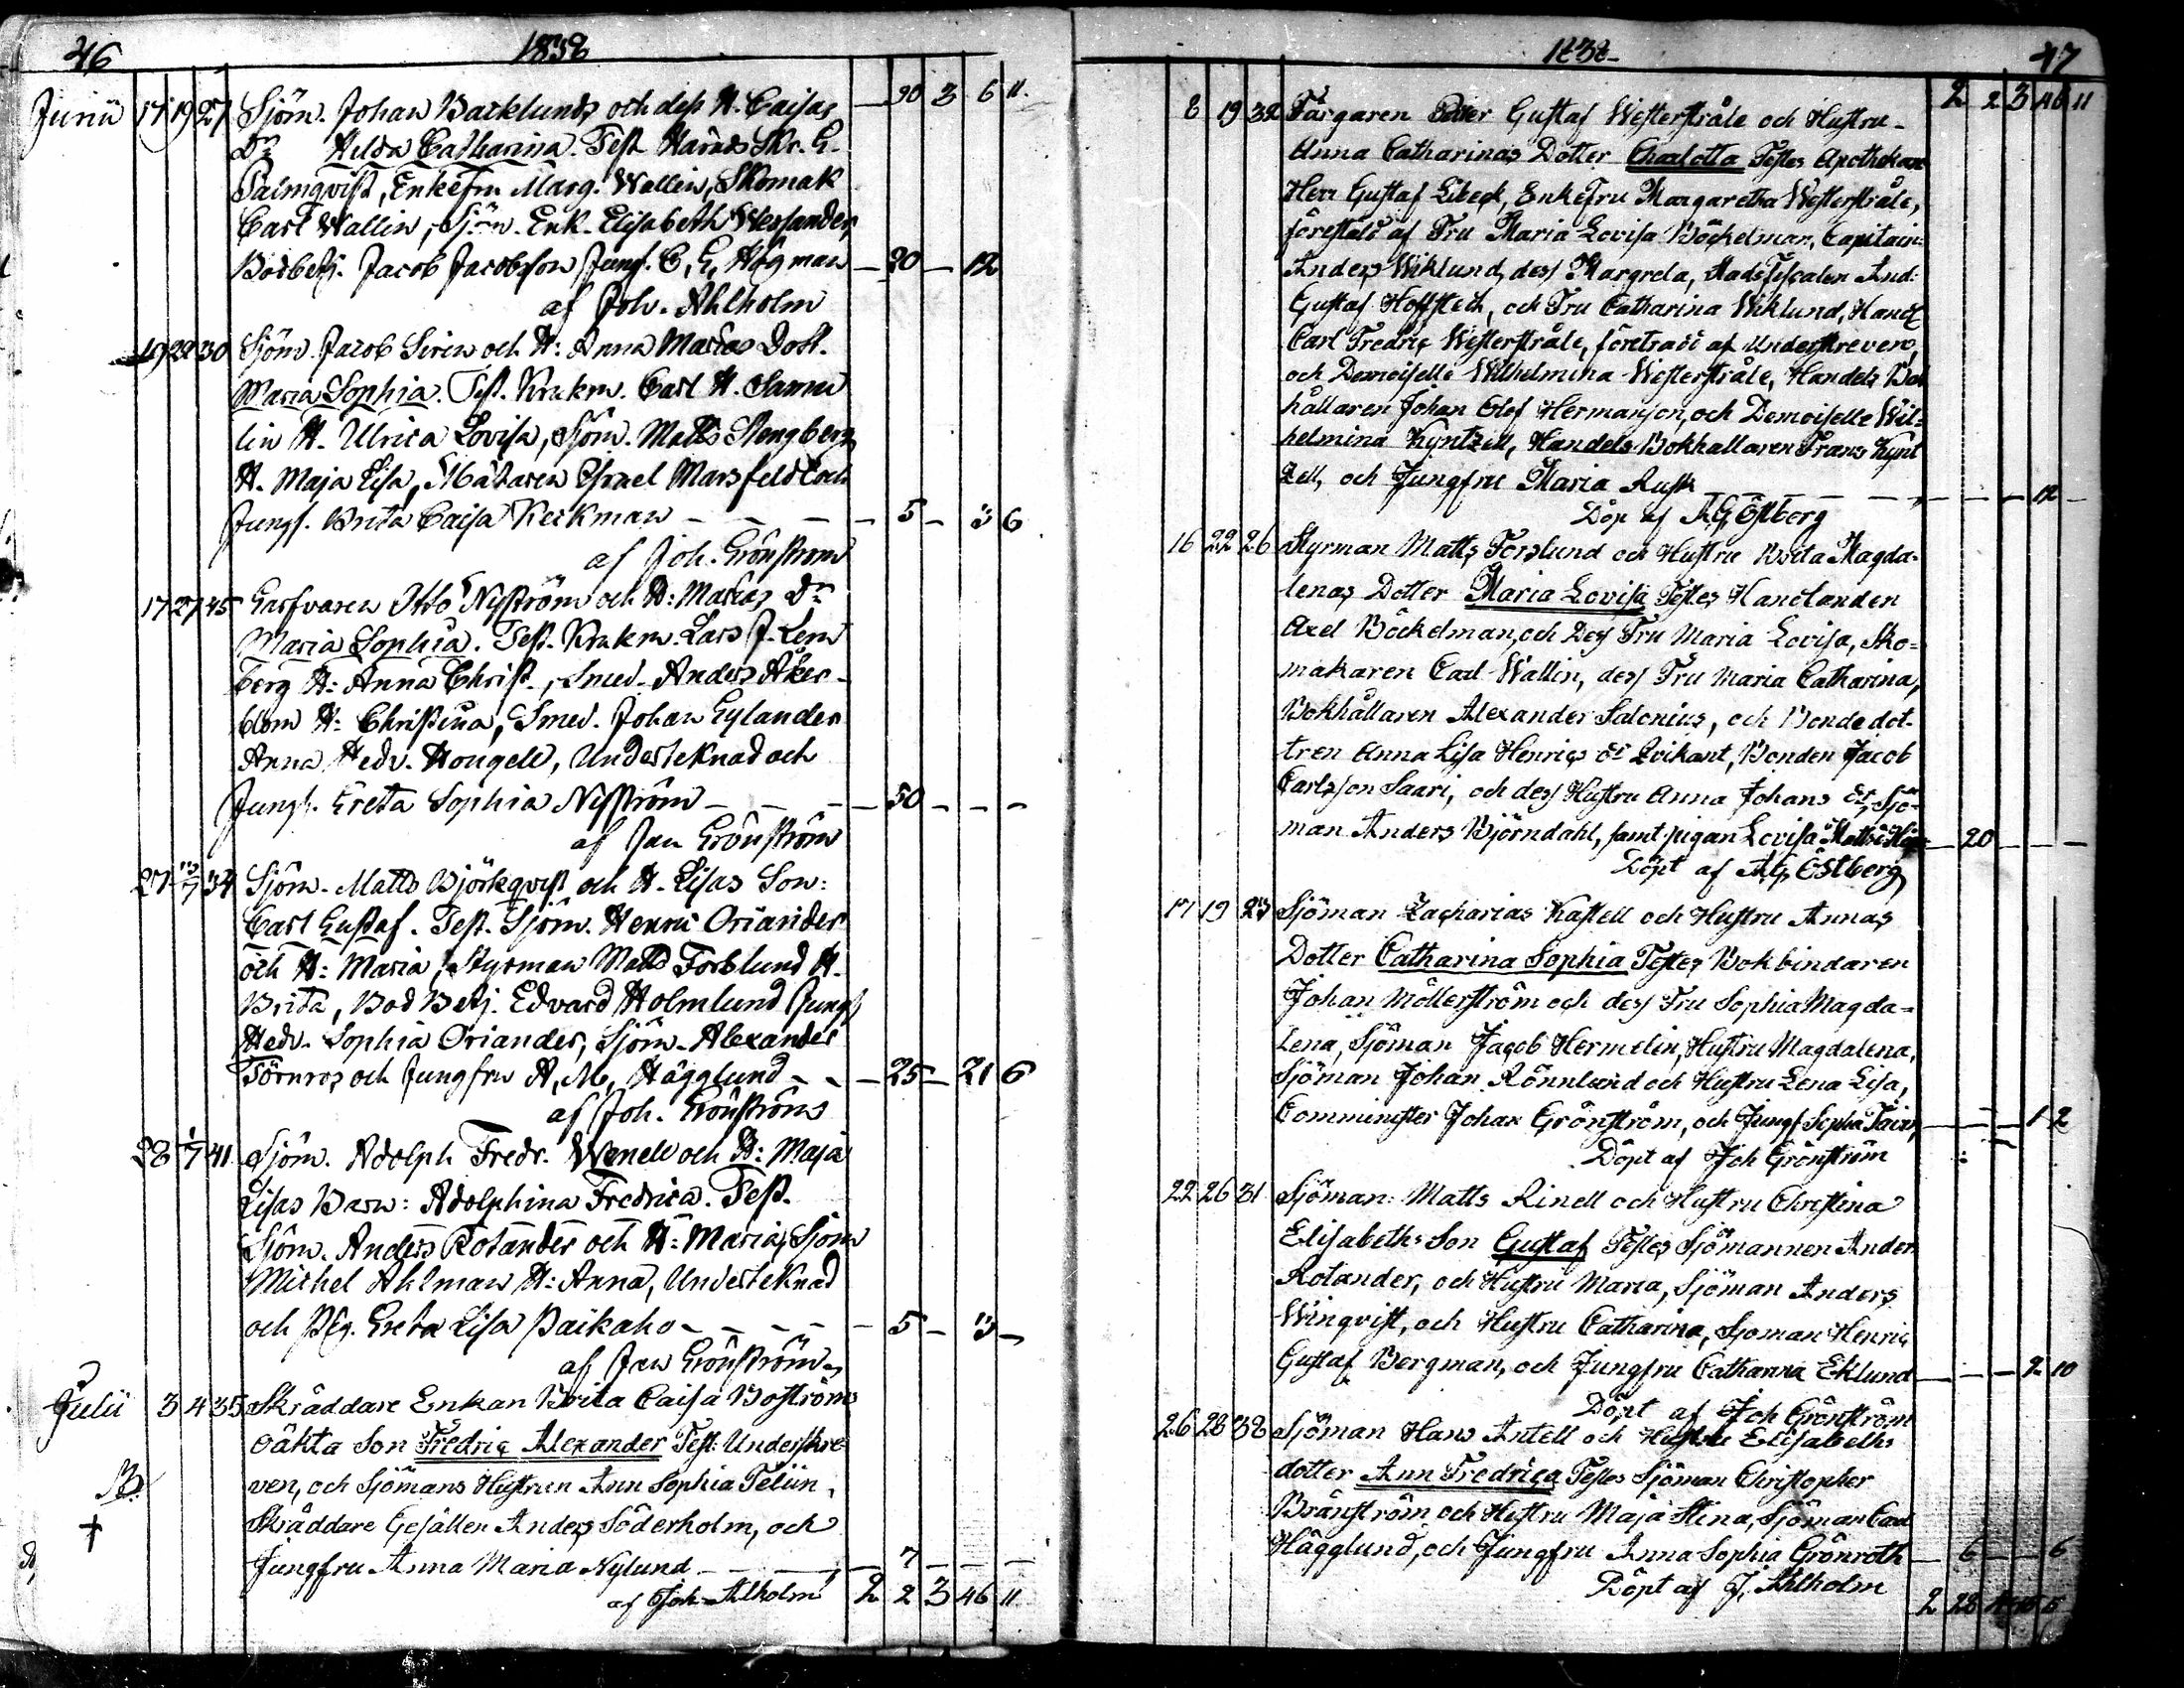 46 1838
Junii 17 19 27 Sjöm. Johan Backlunds och dess H. Caisas — 90 3 6 11.
Dr Hilda Catharina. Test. Härads Skr. E.
Palmqvist, Enkefru Marg. Wallin, Skomak
Carl Wallin, Sjöm. Enk. Elisabeth Weslander,
Bodbetj. Jacob Jacobsson Jungf. C. G. Hägman — 20 — 12
af Joh. Ahlholm
19 22 30 Sjöm. Jacob Siren och H: Anna Marias Dott.
Maria Sophia. Test. Krukm. Carl H. Samu
lin H. Ulrica Lovisa, Sjöm. Matts Stengberg
H. Maja Lisa, Mätaren Israel Marsfeldt och
Jungf. Brita Caisa Keckman — — — — 5 — 3 6
af Joh. Grönström
17 27 45 Garfvaren Otto Nyström och H: Marias Dr
Maria Sophia. Test. Krukm. Lars J. Lem
berg H: Anna Christ., Smed. Anders Åker-
blom H: Christina, Smed. Johan Gylander
Anna Hedv. Hougell, Underteknad och
Jungf. Greta Sophia Nyström — — — — 50 — — —
af Jan Grönström
27 3/7 34 Sjöm. Matts Björkqvist och H. Lisas Son:
Carl Gustaf. Test. Sjöm. Henric Oriander
och H: Maria, Styrman Matts Forslund H.
Brita, Bod Betj. Edvard Holmlund Jungf
Hedv. Sophia Oriander, Sjöm. Alexander
Törnros och Jungfru A. M. Hägglund — — — 25 — 21 6
af Joh. Grönström
28 1/7 41 Sjöm. Adolph Fredr. Wenell och H: Maja
Lisas Barn: Adolphina Fredrica. Test.
Sjöm. Anders Rotander och H: Maria, Sjöm
Michel Ahlman H: Anna, Undertecknad
och Pig. Greta Lisa Paikaho — — — — — 5 — 3 —
af Jan Grönström
Julii 3 4 35 Skräddare Enkan Brita Caisa Boströms
oäkta Son Fredric Alexander Test: Underskre
ven, och Sjömans Hustrun Ann Sophia Telün,
Skräddare Gesällen Anders Söderholm, och
+
Jungfru Anna Maria Nylund — — — — 7 — — —
af Joh. Ahlholm 2 2 3 46 11
1838 47
8 19 32 Färgaren Petter Gustaf Westerstråle och Hustru 2 2 3 46 11
Anna Catharinas Dotter Charlotta Testes Apothekare
Herr Gustaf Libeck, Enkefru Margaretha Westerstråle,
förestäld af Fru Maria Lovisa Böckelman, Capitain
Anders Wiklund, dess Margreta, Stads Fiscalen And:
Gustaf Hoffstedt, och Fru Catharina Wiklund, Handl
Carl Fredric Westerstråle, företrädd af Underskreven,
och Demoiselle Wilhelmina Westerstråle, Handels Bok
hållaren Johan Olof Hermanson, och Demoiselle Wil-
helmina Kyntzell, Handels Bokhallaren Frans Kynt
zell, och Jungfru Maria Rusk — — — — 12 —
Döp af A G Östberg
16 22 26 Styrman Matts Forslund och Hustru Brita Magda-
lenas Dotter Maria Lovisa Testes Handlanden
Axel Böckelman, och Dess Fru Maria Lovisa, Sko-
makaren Carl Wallin, dess Fru Maria Catharina,
Bokhållaren Alexander Salonius, och Bondedot-
tren Anna Lisa Henrics dr Qvikant, Bonden Jacob
Carlsson Saari, och dess Hustru Anna Johans dr, Sjö-
man Anders Björndahl, samt pigan Lovisa Matts — 20 — — —
Döpt af A G Östberg
17 19 23 Sjöman Zacharias Kastell och Hustru Annas
Dotter Catharina Sophia Testes Bokbindaren
Johan Möllerström och dess Fru Sophia Magda-
lena, Sjöman Jacob Hermelin, Hustru Magdalena,
Sjöman Johan Rönnlund och Hustru Lena Lisa,
Comminister Johan Grönström, och Jungf Sophia — — — 1 2
Döpt af Joh Grönström
22 26 31 Sjöman: Matts Rinell och Hustru Christina
Elisabeths Son Gustaf Testes Sjömannen Anders
Rotander, och Hustru Maria, Sjöman Anders
Winqvist, och Hustru Catharina, Sjoman Henric
Gustaf Bergman, och Jungfru Catharina Eklund — — — 2 10
Döpt af Joh Grönström
26 28 38 Sjöman Hans Antell och Hustru Elisabeths
dotter Ann Fredrica Testes Sjöman Christopher
Bränström och Hustru Maja Stina, Sjöman Carl
Hägglund, och Jungfru Anna Sophia Grönroth — 6 — — 6
Döpt af J. Ahlholm
2 28